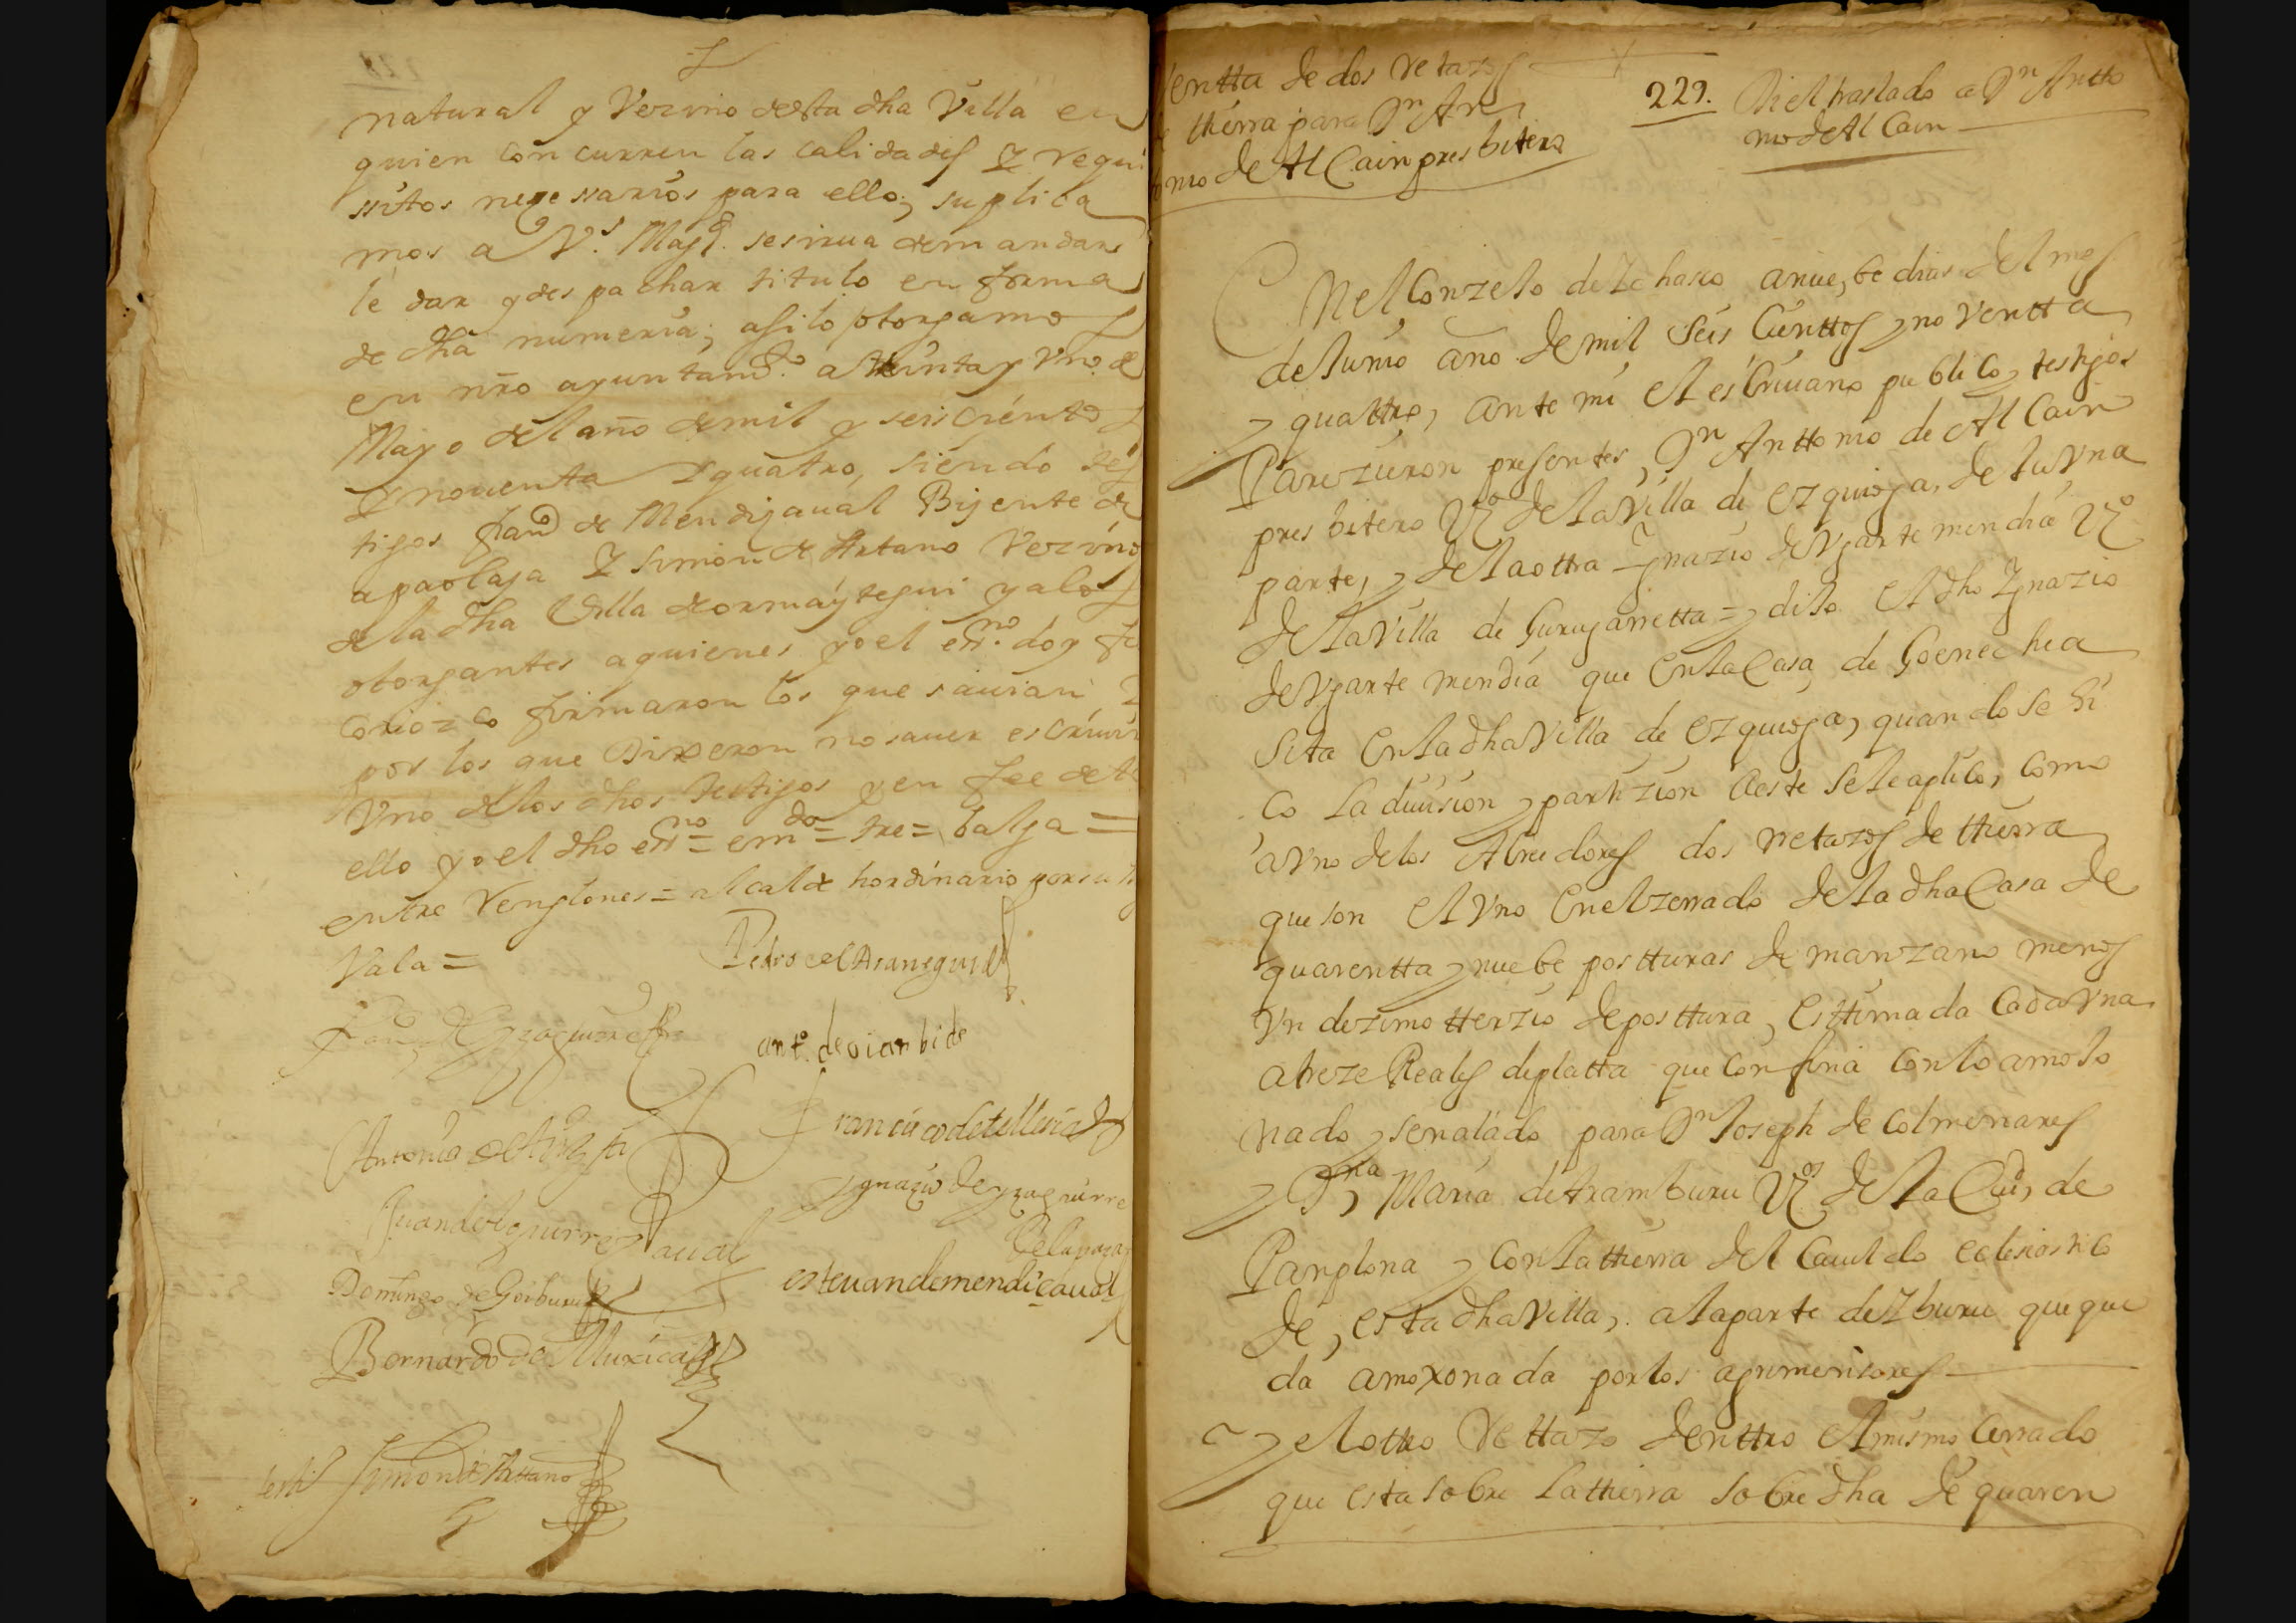 natural y Vezino desta dha Villa en
quien concurren las calidades y requi
ssitos nezessarios para ello; suplica
mos a V.s Magd. se sirua de mandar
le dar y despachar titulo en forma
de dha numeria; assi lo otorgamos
en nro ayuntamto. a treinta y vno de
Mayo del año de mil y seiscientos
y nouenta y quatro, siendo tes
tigos franco de Mendizaual Bizente de
apaolaza y Simon de Artano Vezinos
de la dha Villa de ormaiztegui y a los
otorgantes a quienes yo el essno. doy fe
conozco firmaron los que sauian y
por los que Dixeron no sauer escriuir
vno de los dhos testigos y en fee de
ello yo el dho essno = emdo = tre = balga =
entre Renglones = alcalde hordinario por su
Vala =
Pedro de Aranegui
anto. de oianbide
Antonio de
Francisco de telleria
Ygnazio de yzaguirre
Juan de Aguirre
estevan de mendicaval
Domingo de Goiburu
Bernardo de Muxica
testigo Simon de Artano
Ventta de dos retazos
de thierra para Dn An
tonio de Al Cain presbitero
229.
Di el traslado a Dn Antto
nio de Al Cain
En el Conzejo de Ychaso a nuebe dias del mes
de Junio año de mil seis Cienttos y noventta
y quattro, ante mi el escriuano publico y testigos
Parezieron presentes, Dn Anttonio de Al Cain
presbitero Vo de la Villa de ezquioga, de la vna
parte, y de la ottra Ygnazio de Vgartemendia Vo
de la Villa de Gurugarretta = y dijo el dho Ygnazio
de Vgartemendia que en la Casa de Goenechea
sita en la dha Villa de ezquioga, quando se hi
co la diuision y partizion de este se le aplico, como
a vno de los Acrehedores dos retazos de ttierra
que son el vno en el zerrado de la dha Casa de
quarentta y nuebe postturas de manzano menos
vn dezimo tterzio de posttura, esttimada cada vna
a treze Reales de platta que confina con lo amojo
nado y señalado para Dn Joseph de Colmenares
y Dña Maria de Aramburu Vos de la Ciud, de
Panplona y con la ttierra del Cauildo eclesiastico
de, esta dha Villa, a la parte de Yburu que que
da amoxonada por los agrimensores
y el otro Rettazo denttro el mismo cerrado
que esta sobre la ttierra sobre dha de quaren